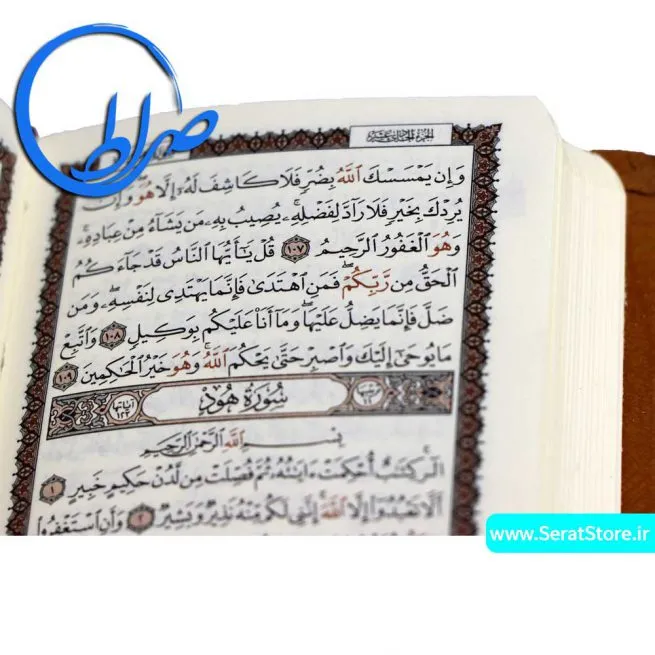 صراط
الجزء الحادي عشر
وَإِن يَمْسَسْكَ اللَّهُ بِضُرٍّ فَلَا كَاشِفَ لَهُ إِلَّا هُوَ وَإِن
يُرِدْكَ بِخَيْرٍ فَلَا رَادَّ لِفَضْلِهِ يُصِيبُ بِهِ مَن يَشَاءُ مِنْ عِبَادِهِ
وَهُوَ الْغَفُورُ الرَّحِيمُ ١٠٧ قُلْ يَا أَيُّهَا النَّاسُ قَدْ جَاءَكُمُ
الْحَقُّ مِن رَّبِّكُمْ فَمَنِ اهْتَدَىٰ فَإِنَّمَا يَهْتَدِي لِنَفْسِهِ وَمَن
ضَلَّ فَإِنَّمَا يَضِلُّ عَلَيْهَا وَمَا أَنَا عَلَيْكُم بِوَكِيلٍ ١٠٨ وَاتَّبِعْ
مَا يُوحَىٰ إِلَيْكَ وَاصْبِرْ حَتَّىٰ يَحْكُمَ اللَّهُ وَهُوَ خَيْرُ الْحَاكِمِينَ ١٠٩
سُورَةُ هُودٍ آياتها ١٢٣
بِسْمِ اللَّهِ الرَّحْمَٰنِ الرَّحِيمِ
الٓر كِتَابٌ أُحْكِمَتْ آيَاتُهُ ثُمَّ فُصِّلَتْ مِن لَّدُنْ حَكِيمٍ خَبِيرٍ ١
أَلَّا تَعْبُدُوا إِلَّا اللَّهَ إِنَّنِي لَكُم مِّنْهُ نَذِيرٌ وَبَشِيرٌ ٢ وَأَنِ اسْتَغْفِرُوا
www.SeratStore.ir